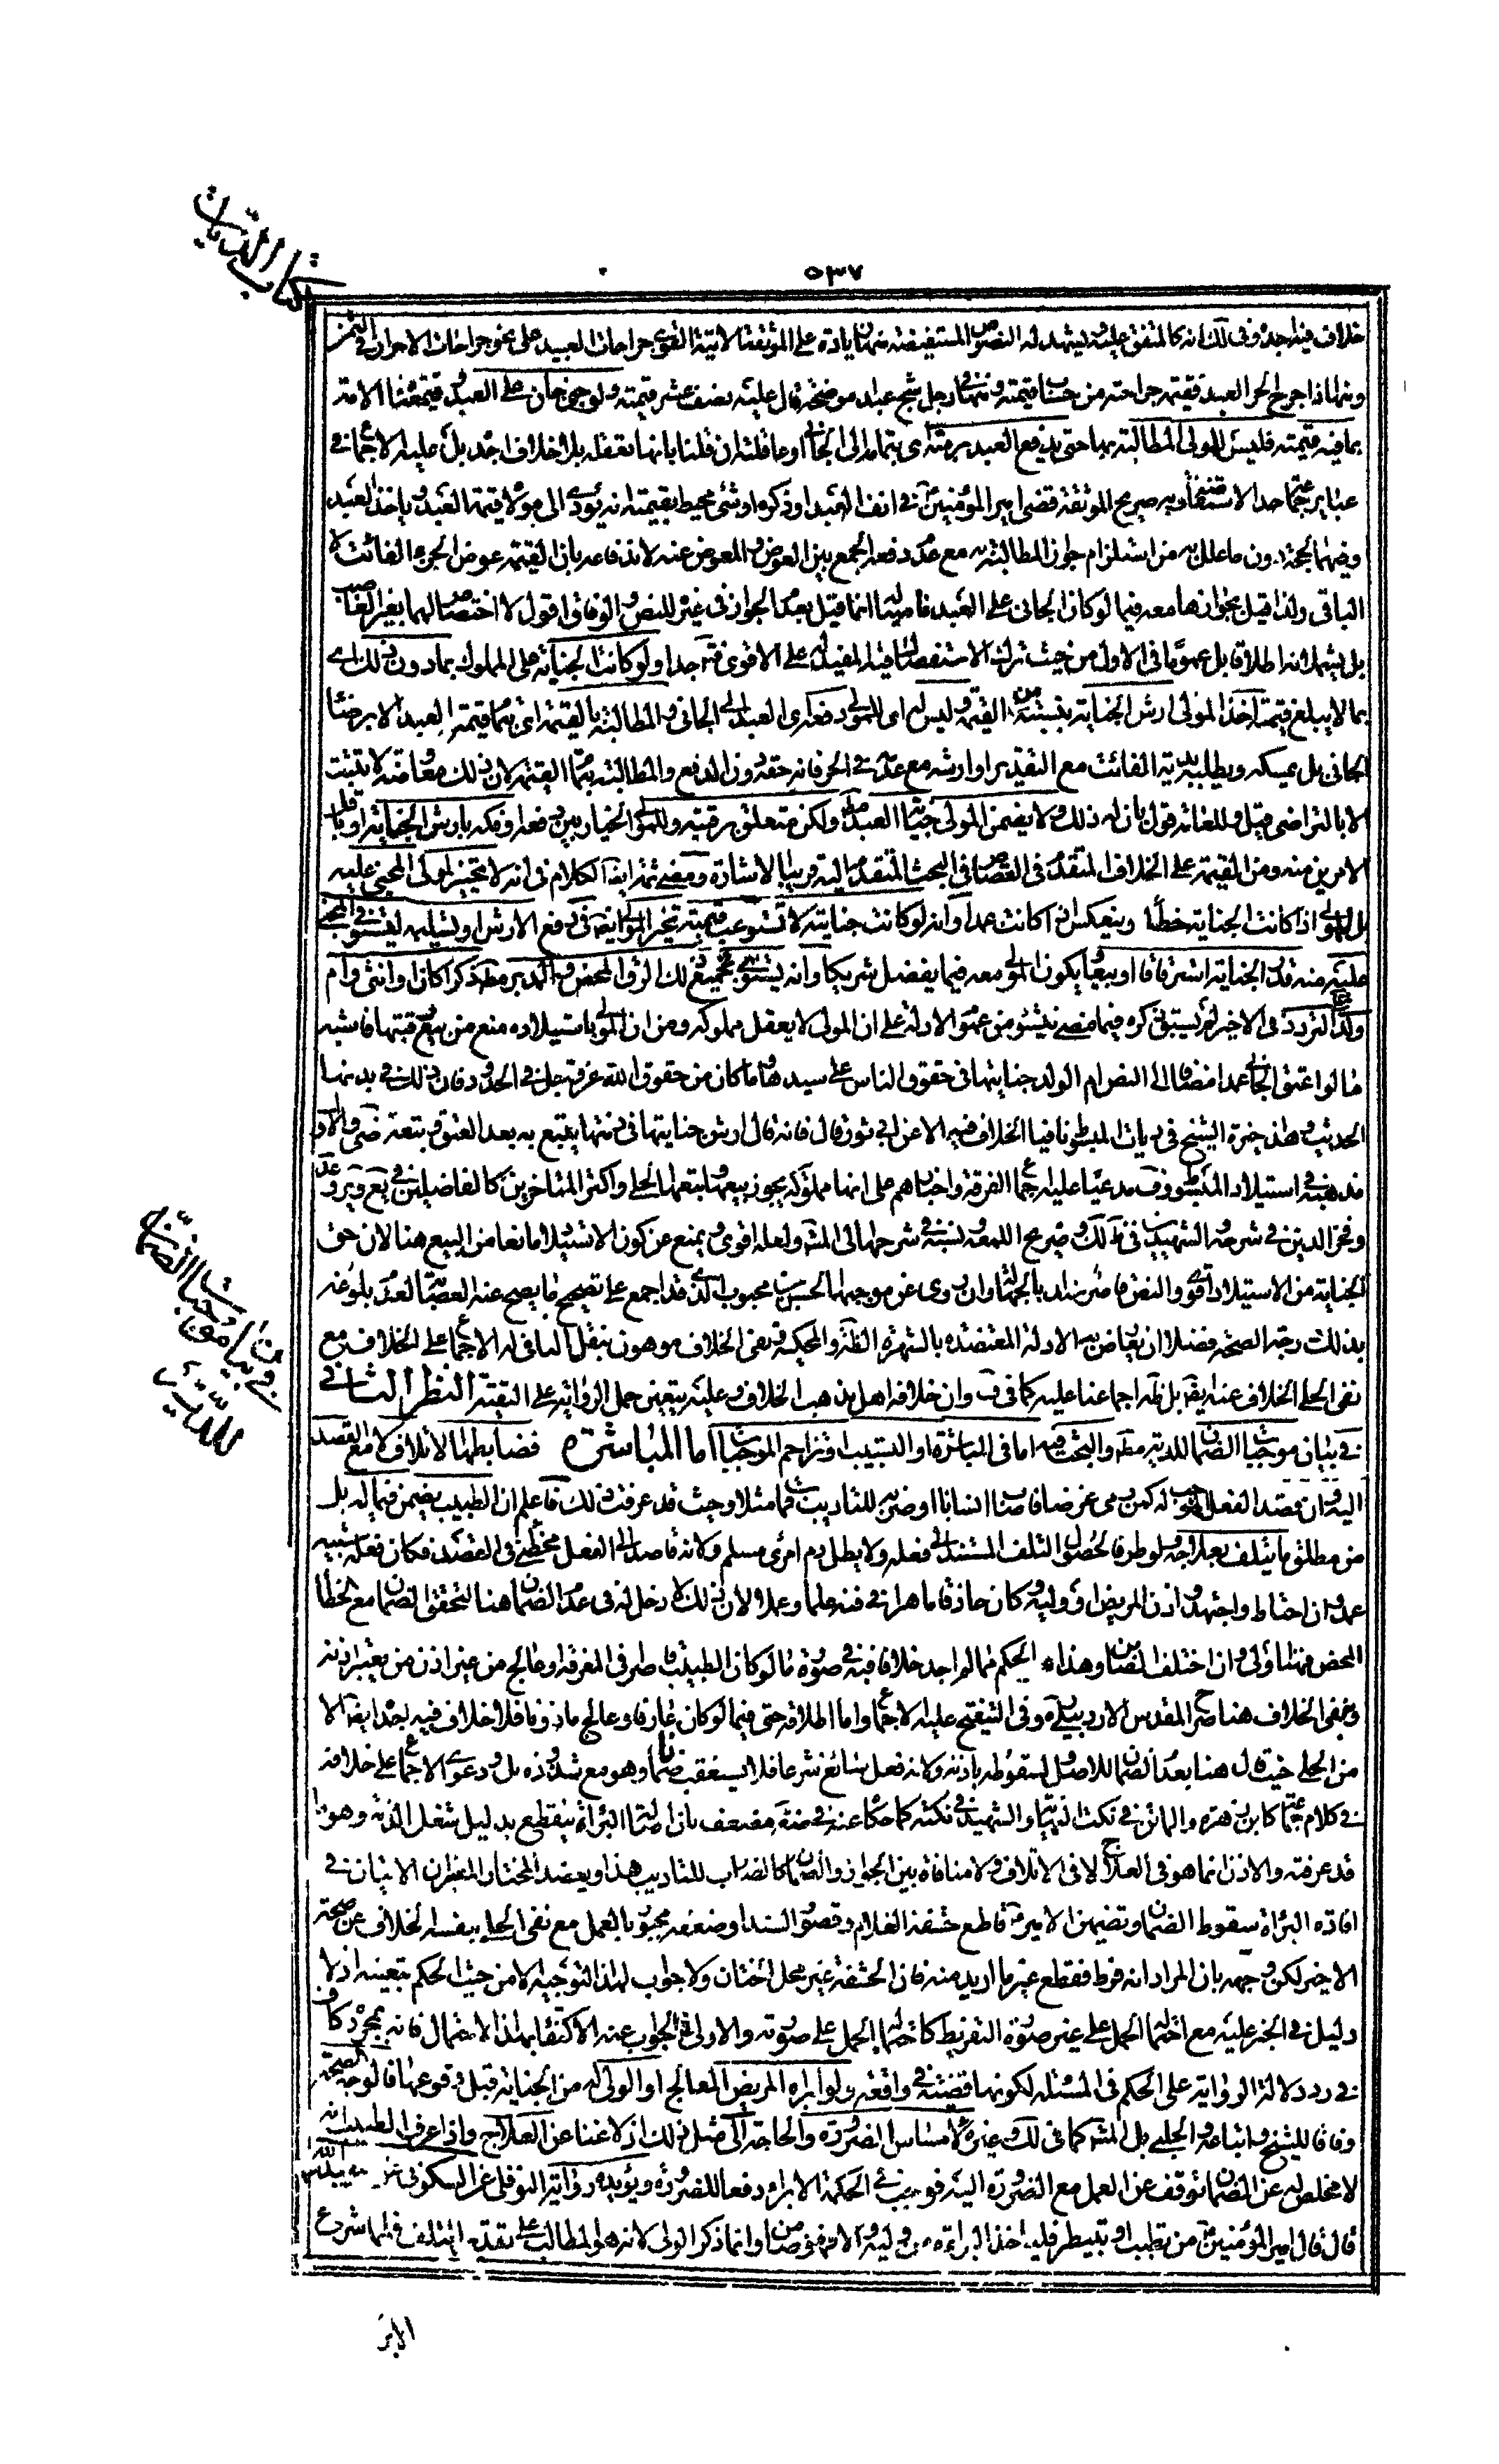 كتاب الديات
٥٣٧
خلاف فيه اجده وفى لك انه كالمتفق عليه ويشهد له النصوص المستفيضة منها زيادة على الموثقة الاتية القوى جراحات العبيد على نحو جراحات الاحرار فى الثمن
ومنها اذا جرح الحر العبد فقيمة جراحته من حساب قيمته ومنها فى رجل شج عبدا موضحة قال عليه نصف عشر قيمته ولو جنى جان على العبد بما فيه قيمته
بما فيه قيمته فليس للمولى المطالبة بها حتى يدفع العبد برمته اى بتمامه الى الجانى او عاقلته ان قلنا بانها تعقله بلا خلاف اجده بل عليه الاجماع فى
عباير جماعة حد الاستفاضة وبه صريح الموثقة قضى امير المؤمنين فى انف العبد او ذكره او شئ يحيط بقيمته انه يؤدى الى مولاه قيمة العبد وياخذ العبد
وفيهما الحجة دون ما علل به من استلزام جواز المطالبة به مع عدم دفعه الجمع بين العوض والمعوض عنه لاندفاعه بان القيمة عوض الجزء الفائت لا
الباقى ولذا قيل بجوازها معه فيما لو كان الجانى على العبد غاصبا له انما قيل بعدم الجواز فى غيره للنص والوفاق واقول لا اختصاص لهما بغير الغاصب
بل يشمله اطلاقا بل عموما فى الاول من حيث ترك الاستفصال فيه المفيد له على الاقوى فتم جدا ولو كانت الجناية على المملوك بما دون ذلك اى
بما لا يبلغ قيمته اخذ المولى ارش الجناية بنسبته من القيمة وليس له اى للمولى دفعه اى العبد الى الجانى والمطالبة بالقيمة اى بتمام قيمة العبد الا برضا
الجانى بل يمسكه ويطلب بدية الفائت مع التقدير او ارشه مع عدمه فى الحر فانه حقه دون الدفع والمطالبة بتمام القيمة لان ذلك معاوضة لا تثبت
الا بالتراضى قيل وللعامة قول بان له ذلك ولا يضمن المولى جناية العبد مط ولكن متعلق برقبته وللمولى الخيار بين دفعه او فكه بارش الجناية او باقل
الامرين منه ومن القيمة على الخلاف المتقدم فى القصاص فى البحث المتقدم اليه قريبا الاشارة ومضى ثمة ايضا الكلام فى انه لا تخيير لمولى المجنى عليه
بل للمولى اذا كانت الجناية خطأ وينعكس اذا كانت عمدا وانه لو كانت جنايته لا تستوعب قيمته تخير المولى ايضا فى دفع الارش او تسليمه ليستوفى المجنى
عليه منه قدر الجناية استرقاقا او بيعا ويكون المولى معه فيما يفضل شريكا وانه يستوى فى جميع ذلك الرق المحض والمدبر مط ذكرا كان او انثى وام
ولد التردد فى الاخير لم يسبق ذكره فيما مضى ينشؤ من عموم الادلة على ان المولى لا يعقل مملوكه ومن ان المولى باستيلاده منع من بيع رقبتها فاشبه
ما لو اعتق الجانى عمدا مضافا الى النص ام الولد جنايتها فى حقوق الناس على سيدها وما كان من حقوق الله عز وجل فى الحدود فان ذلك فى بدنها
الحديث وهذا خيرة الشيخ فى ديات المبسوط نافيا الخلاف فيه الا عن ابى ثور قال فانه قال ارش جنايتها فى ذمتها يتبع به بعد العتق وتبعه ضى والاول
مذهبه فى استيلاد المبسوط وف مدعيا عليه اجماع الفرقة واخبارهم على انها مملوكة يجوز بيعها وتبعها الحلى واكثر المتاخرين كالفاضلين فى يع وير وعد
وفخر الدين فى شرحه والشهيدين فى لك وصريح اللمعة ونسبته فى شرحها الى المشهور ولعله اقوى ويمنع عن كون الاستيلاد مانعا من البيع هنا لان حق
الجناية من الاستيلاد اقوى والنص قاصر سنده بالجهالة وان روى عن موجبها الحسن بن محبوب الذى قد اجمع على تصحيح ما يصح عنه العصابة لعدم بلوغه
بذلك درجة الصحة فضلا ان يعارض به الادلة المعتضدة بالشهرة الظاهرة والمحكية ونفى الخلاف موهون بنقل الباقى له الاجماع على الخلاف مع
نفى الحلى الخلاف عنه ايضا بل ظاهره اجماعنا عليه كما فى ف وان خلافه اهل مذهب الخلاف وعليه يتعين حمل الرواية على التقية النظر الثانى
فى بيان موجبات الضمان للدية مط والبحث فيه اما فى المباشرة او التسبيب او تزاحم الموجبات اما المباشرة فضابطها الاتلاف لا مع القصد
اليه وان قصد الفعل الموجب له كمن رمى غرضا فاصاب انسانا او ضرب للتاديب فمات مثلا وحيث قد عرفت ذلك فاعلم ان الطبيب يضمن فى ماله بل
من مطلق ما يتلف بعلاجه ولو طرفا لحصول التلف المستند الى فعله ولا يطل دم امرئ مسلم ولانه قاصد الى الفعل مخطئ فى القصد فكان فعله شبيه
عمد وان احتاط واجتهد واذن المريض او وليه وكان حاذقا ماهرا فى فنه علما وعملا لان ذلك لا دخل له فى عدم الضمان هنا لتحقق الضمان مع الخطأ
المحض فهنا اولى وان اختلف الضامن وهذا الحكم مما لم اجد خلافا فيه فى صورة ما لو كان الطبيب قاصرا فى المعرفة وعالج من غير اذن من يعتبر اذنه
وبنفى الخلاف هنا صرح المقدس الاردبيلى ره وفى التنقيح عليه الاجماع واما اطلاقه حتى فيما لو كان عارفا وعالج ماذونا فلا خلاف فيه يعتد به ايضا الا
من الحلى حيث قال هنا بعدم الضمان للاصل لسقوطه باذنه ولانه فعل سائغ شرعا فلا يستعقب ضمانا وهو مع شذوذه بل ودعوى الاجماع على خلافه
فى كلام جماعة كابن زهرة والماتن فى نكت النهاية والشهيد فى نكته كما حكاه عنه فى ضة مضعف بان اصالة البراءة ينقطع بدليل شغل الذمة وهو ما
قد عرفته والاذن انما هو فى العلاج لا فى الاتلاف ولا منافاة بين الجواز والضمان كالضارب للتاديب هذا ويعضد المختار الخبران الاتيان فى
افادة البراءة سقوط الضمان وتضمين الامير ع قاطع حشفة الغلام وقصور السند او ضعفه مجبور بالعمل مع نفى الحلى بنفسه الخلاف عن صحة
الاخير لكن وجهه بان المراد انه فرط فقطع غير ما اريد منه فان الحشفة غير محل الختان ولا جواب لهذا التوجيه الا من حيث الحكم بتعينه اذ لا
دليل فى الخبر عليه مع احتماله الحمل على غير صورة التفريط كاحتماله الحمل على صورته والاولى فى الجواب عنه الاكتفاء بهذا الاحتمال فانه بمجرده كاف
فى رد دلالة الرواية على الحكم فى المسئلة لكونها قضية فى واقعة ولو ابراه المريض المعالج او الولى له من الجناية قبل وقوعها فالوجه الصحة
وفاقا للشيخ واتباعه والحلبى بل المشهور كما فى لك وغيره لامساس الضرورة والحاجة الى مثل ذلك اذ لا غنا عن العلاج واذا عرف الطبيب انه
لا مخلص له عن الضمان توقف عن العمل مع الضرورة اليه فوجب فى الحكمة الابراء دفعا للضرورة ويؤيده رواية النوفلى عن السكونى
قال قال امير المؤمنين ع من تطبب او تبيطر فلياخذ البراءة من وليه والا فهو ضامن وانما ذكر الولى لانه هو المطالب على تقدير التلف فلما شرع
فى بيان موجبات الضمان
للدية
الابر